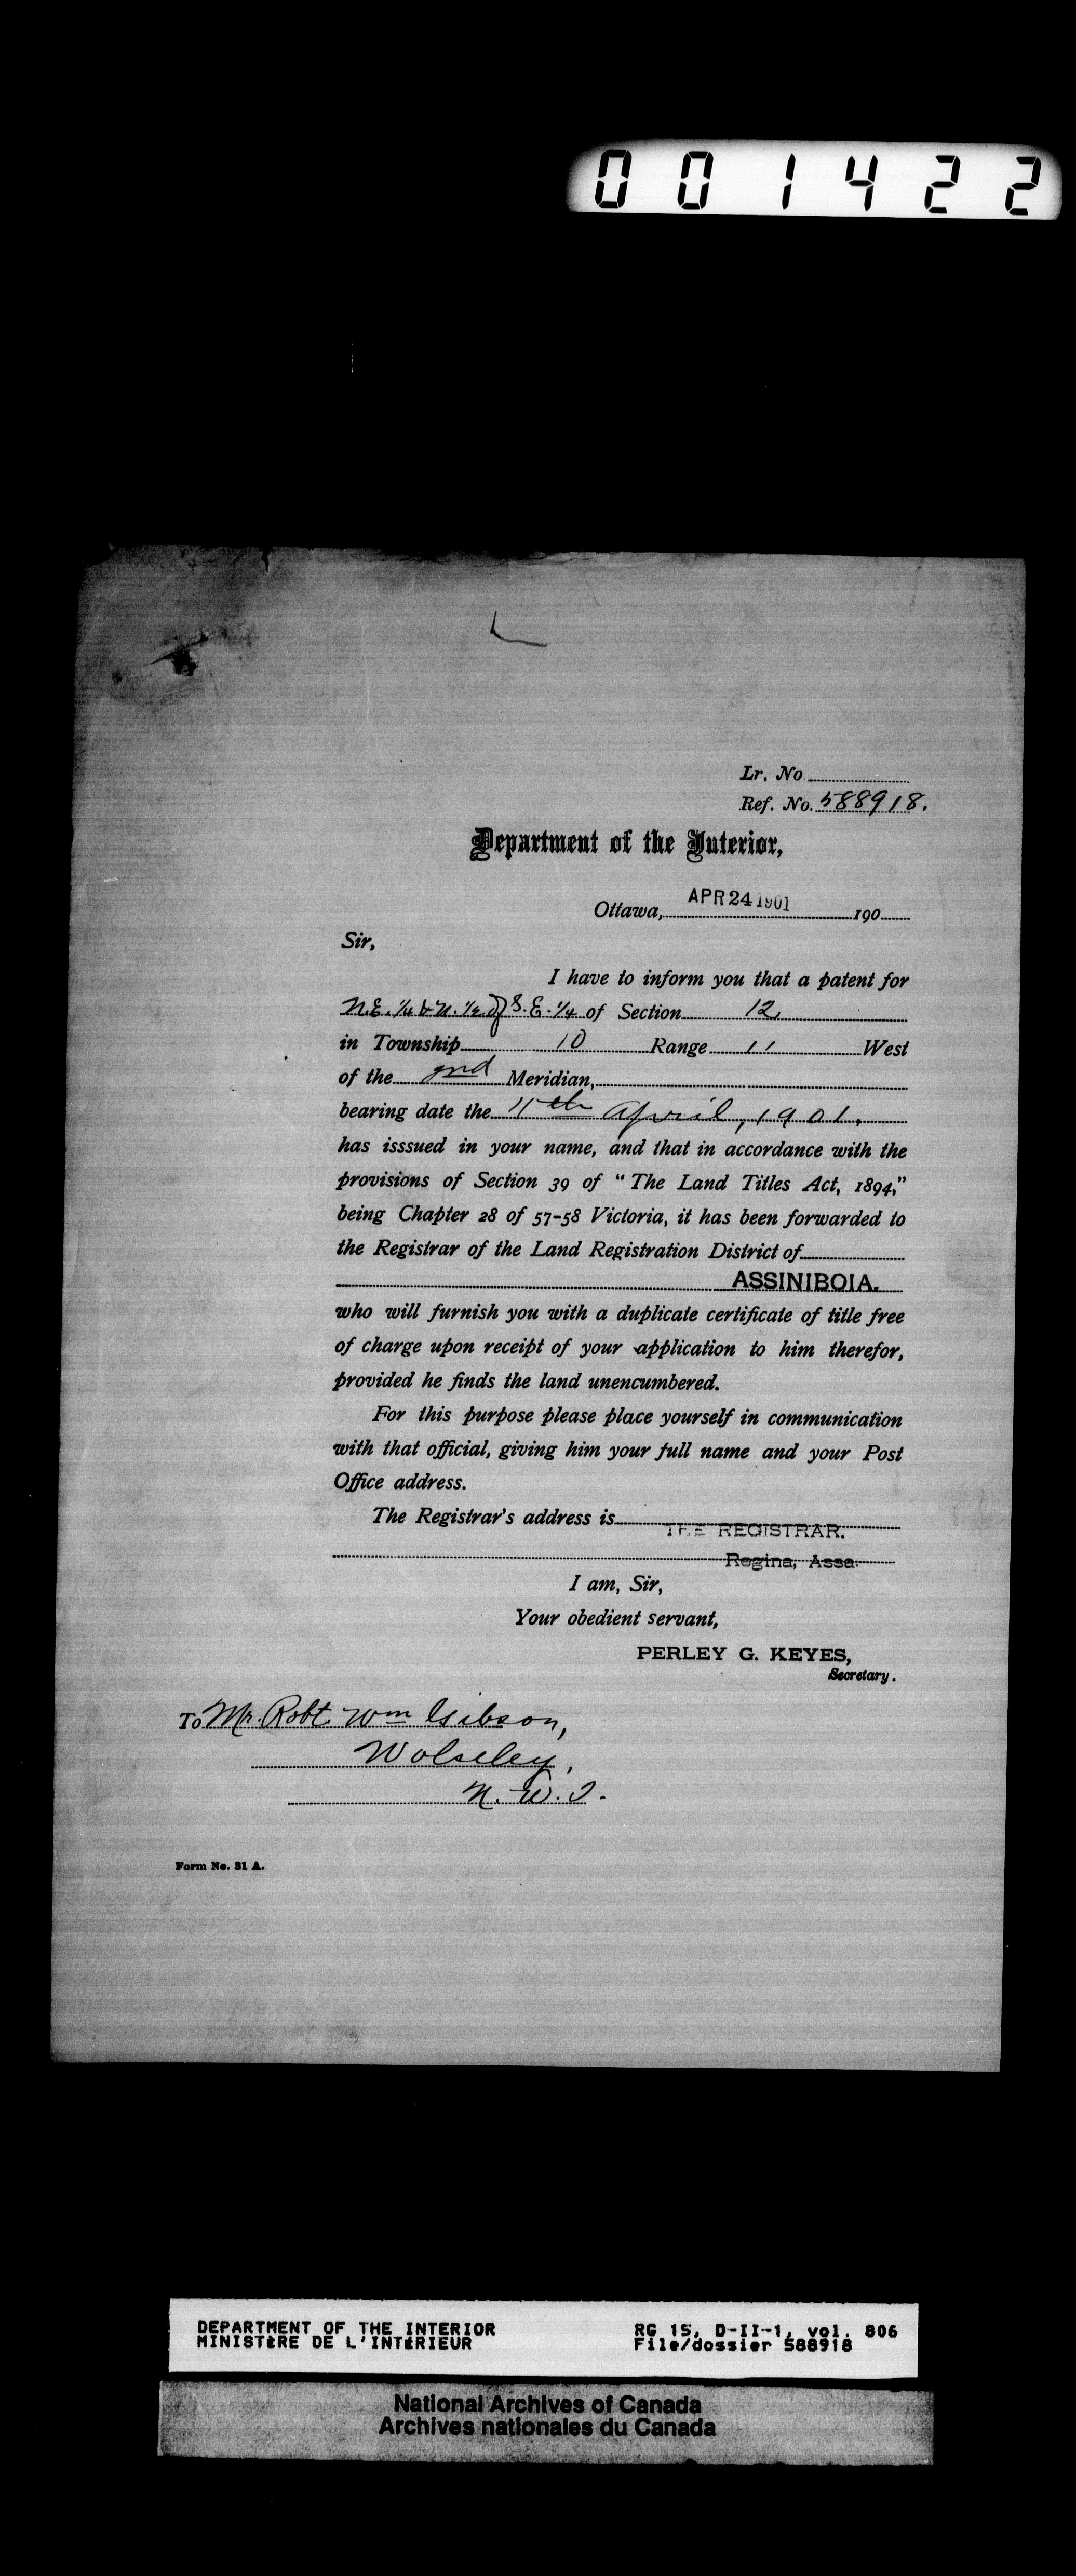 001422
Lr. No.
Ref. No. 588918.
Department of the Interior,
Ottawa, APR 24 1901 190
Sir,
I have to inform you that a patent for
N.E. 1/4 & N. 1/2 of S.E. 1/4 of Section 12
in Township 10 Range 11 West
of the 2nd Meridian,
bearing date the 11th April, 1901.
has isssued in your name, and that in accordance with the
provisions of Section 39 of “The Land Titles Act, 1894,”
being Chapter 28 of 57-58 Victoria, it has been forwarded to
the Registrar of the Land Registration District of
ASSINIBOIA.
who will furnish you with a duplicate certificate of title free
of charge upon receipt of your application to him therefor,
provided he finds the land unencumbered.
For this purpose please place yourself in communication
with that official, giving him your full name and your Post
Office address.
The Registrar's address is
THE REGISTRAR.
Regina, Assa.
I am, Sir,
Your obedient servant,
PERLEY G. KEYES,
Secretary.
To Mr. Robt. Wm Gibson,
Wolseley,
N. W. T.
Form No. 31 A.
DEPARTMENT OF THE INTERIOR RG 15, D-II-1, vol. 806
MINISTÈRE DE L'INTÉRIEUR File/dossier 588918
National Archives of Canada
Archives nationales du Canada